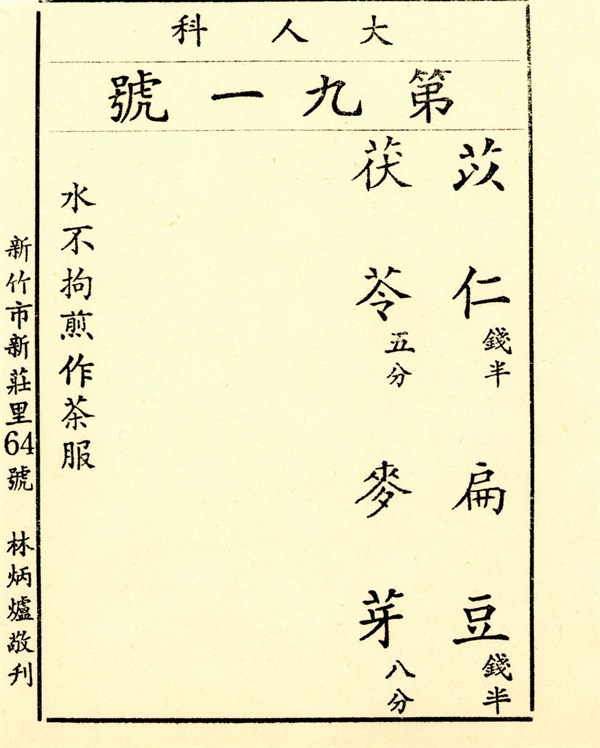 大人科
第九一號
茨仁錢半 扁豆錢半
茯苓五分 麥芽八分
水不拘煎作茶服
新竹市新莊里64號 林炳爐敬刊